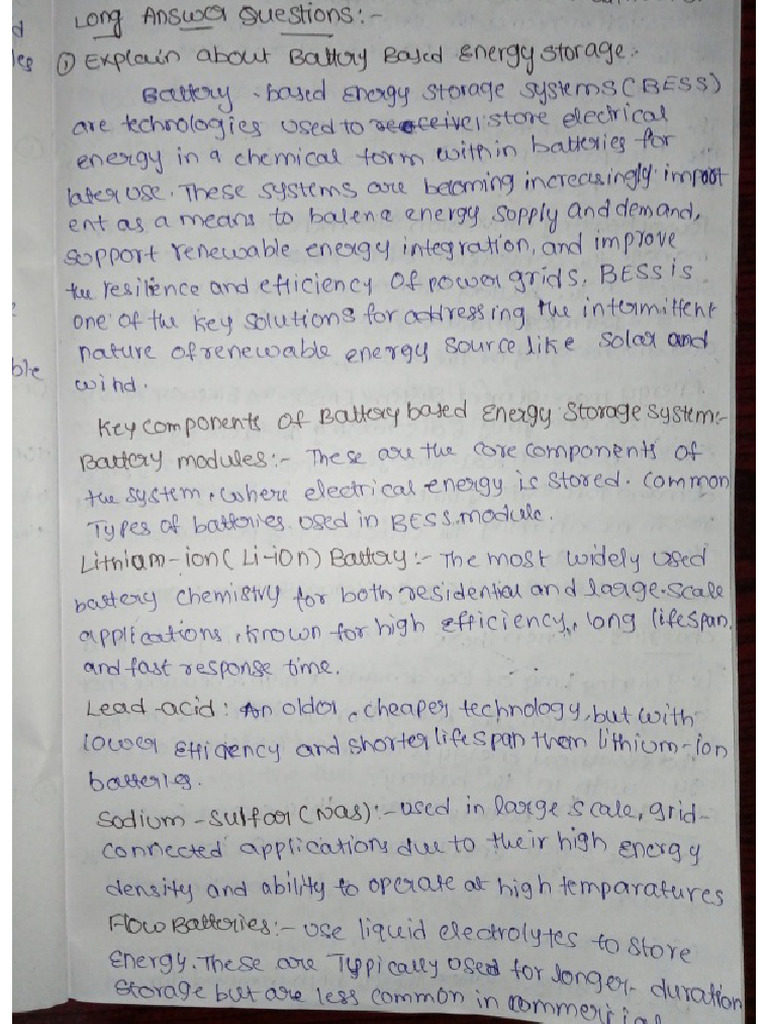 d
les
ble
Long Answer Questions:-
① Explain about Battery Based Energy storage:-
Battery-based Energy Storage Systems (BESS)
are technologies used to store electrical
energy in a chemical form within batteries for
later use. These systems are becoming increasingly import
ent as a means to balene energy sopply and demand,
support renewable energy integration, and improve
the resilience and efficiency of power grids. BESS is
one of the key solutions for addressing the intermittent
nature of renewable energy source like solar and
wind.
Key components of Battery based Energy Storage system:-
Battery modules:- These are the core components of
the system, where electrical energy is stored. Common
Types of batteries used in BESS module.
Lithiam-ion (Li-ion) Battery:- The most widely used
battery chemistry for both residential and large-scale
applications, known for high efficiency, long lifespan,
and fast response time.
Lead-acid: An older, cheaper technology, but with
lower Efficiency and shorter lifespan them lithium-ion
batteries.
Sodium-Sulfoor (Nas):- used in large scale, grid-
connected applications due to their high energy
density and ability to operate at high temparatures
Flow Batteries:- use liquid electrolytes to store
Energy. These are Typpically used for longer-duration
Storage but are less common in commercial